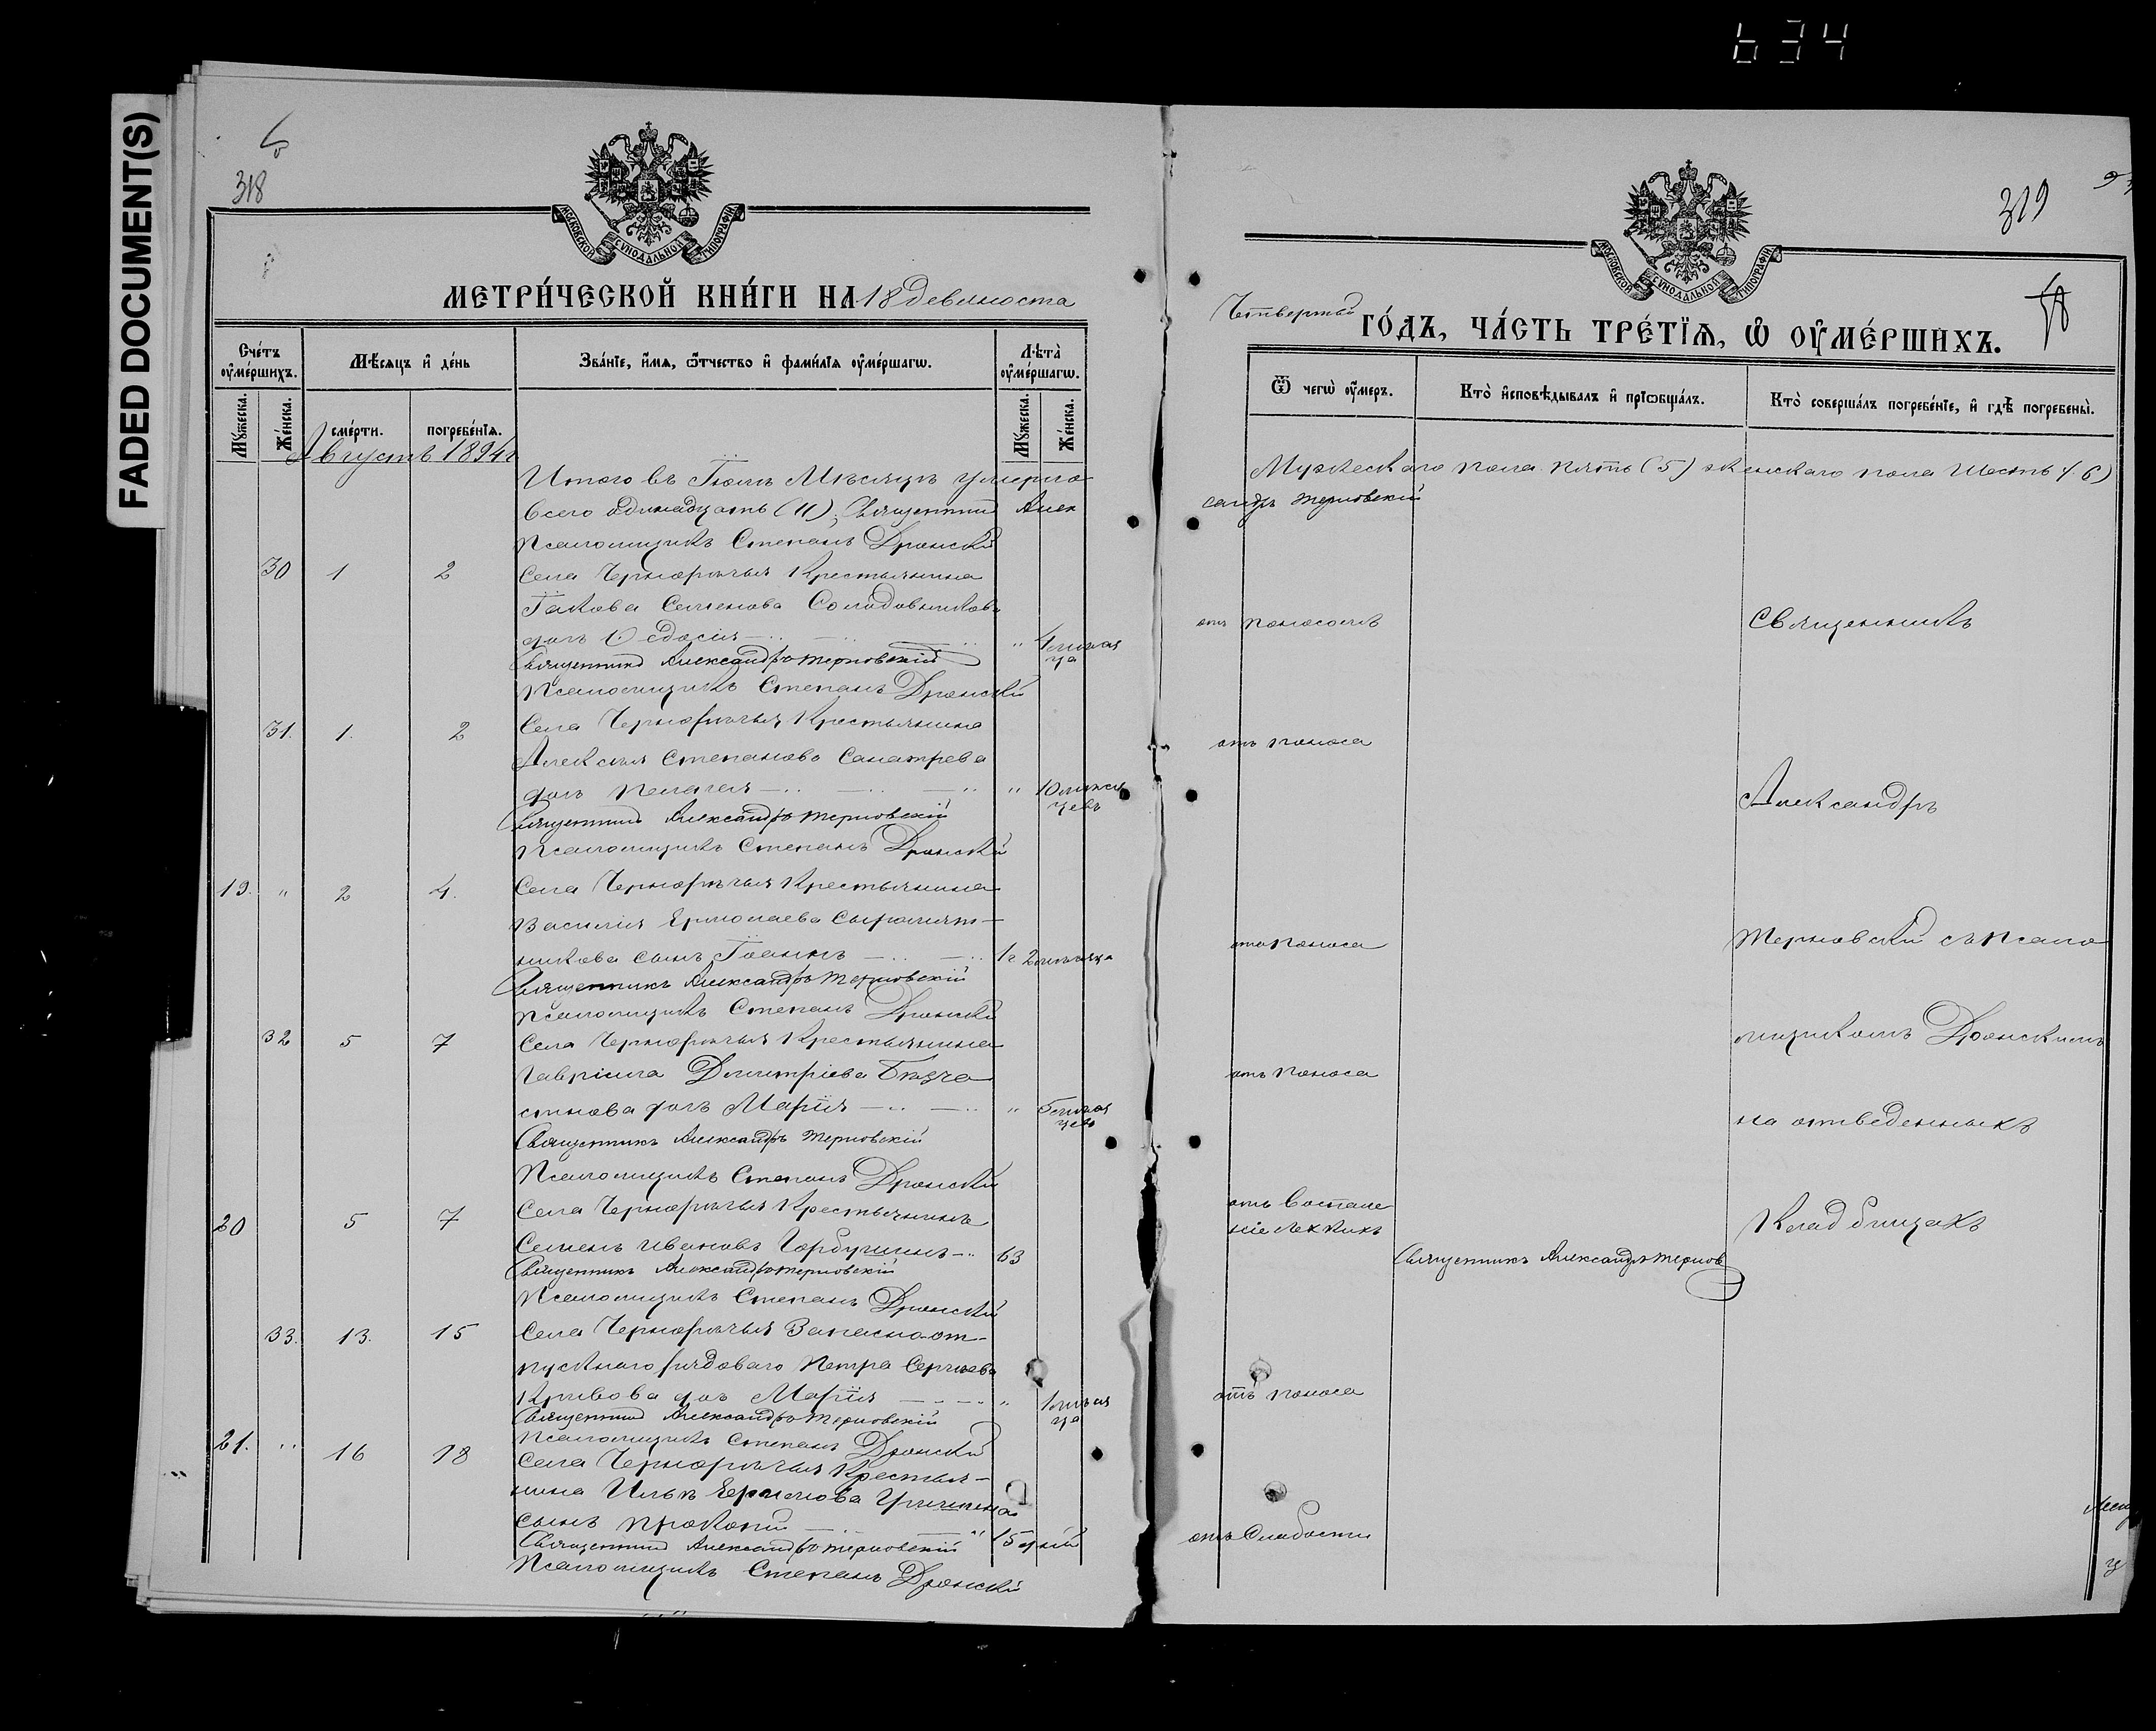 634
FADED DOCUMENT(S)
318
МОСКОВСКОЙ СѴНОДАЛЬНОЙ ТИПОГРАФІИ
МЕТРИ́ЧЕСКОЙ КНИ́ГИ НА 18 девяноста
Сче́тъ оумершихъ.
Мѣсяцъ и де́нь
Зва́ніе, имя, ѿтчество и фами́лія оуме́ршагѡ.
Лѣта̀ оуме́ршагѡ.
Мꙋжеска.
Же́нска.
сме́рти.
погребе́нія.
Мꙋжеска.
Же́нска.
Августъ 1894 г
Итого въ Іюлѣ Мѣсяцѣ умерло
всего одинадцать (11), Священникъ Алек
Псаломщикъ Степанъ Дронскій
30 1 2 Села Чернорѣчья Крестьянина
Іакова Семенова Солодовникова
дочь Ѳедосія " 4 мѣся
ца
Священникъ Александръ Терновскій
Псаломщикъ Степанъ Дронскій
31. 1. 2 Села Чернорѣчья Крестьянина
Алексѣя Степанова
дочь Пелагея " 10 мѣся
цевъ
Священникъ Александръ Терновскій
Псаломщикъ Степанъ Дронскій
19. " 2 4. Села Чернорѣчья Крестьянина
Василія Ермолаева Сыромят-
никова сынъ Іоаннъ 1 г 2 мѣсяца
Священникъ Александръ Терновскій
Псаломщикъ Степанъ Дронскій
32 5 7 Села Чернорѣчья Крестьянина
Гавріила Димитріева
дочь Марія " 5 мѣся
цев
Священникъ Александръ Терновскій
Псаломщикъ Степанъ Дронскій
20 5 7 Села Чернорѣчья Крестьянинъ
Семенъ Ивановъ Горбушинъ 63
Священникъ Александръ Терновскій
Псаломщикъ Степанъ Дронскій
33. 13. 15 Села Чернорѣчья Запасно-от-
пускнаго рядоваго Петра Сергѣева
Кривова дочь Марія " 1 мѣся
ца
Священникъ Александръ Терновскій
Псаломщикъ Степанъ Дронскій
21. " 16 18 Села Чернорѣчья Крестья-
нина Ильи
сынъ Прокопій 15 дней
Священникъ Александръ Терновскій
Псаломщикъ Степанъ Дронскій
319
МОСКОВСКОЙ СѴНОДАЛЬНОЙ ТИПОГРАФІИ
Четвертый ГО́ДЪ, ЧА́СТЬ ТРЕ́ТІЯ, Ѡ ОУМЕ́РШИХЪ.
Ѿ чегѡ̀ оумеръ.
Кто̀ исповѣдывалъ и прїѡбща́лъ.
Кто̀ соверша́лъ погребе́ніе, и гдѣ̀ погребены̀.
Мужескаго пола пять (5) женскаго пола шесть (6)
сандръ Терновскій
отъ поносомъ
Священникъ
отъ поноса
Александръ
отъ поноса
Терновскій съ псало
мщикомъ Дронскимъ
отъ поноса
на отведенныхъ
отъ Воспале
ніе легкихъ
кладбищахъ
Священникъ Александръ Тернов
отъ поноса
отъ Слабости